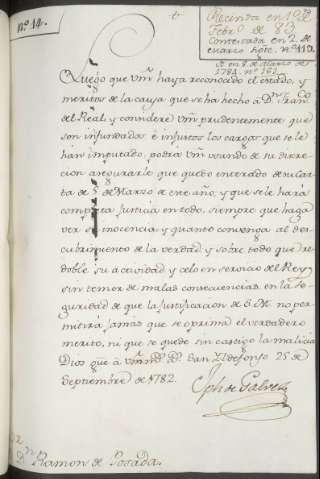 n.º 14.
Recivida en 12 de
Febr.º de 83.
Contestada en 2 de
Marzo sig.te n.º 119.
Luego que Vm. haya reconocido el estado, y
meritos de la causa que se ha hecho á D.n Fran.co
del Real, y considere Vm. prudentemente que
son infundados é injustos los cargos que se le
han imputado, podrá Vm. usando de su discre
cion asegurarle que quedo enterado de su car
ta de 5 de Marzo de este año, y que se le hará
completa Justicia en todo, siempre que haga
ver su inocencia, y quanto convenga al des
cubrimiento de la verdad, y sobre todo que re
doble su actividad y celo en servicio del Rey
sin temor de malas consecuencias en la se
guridad de que la Justificacion de S.M. no per
mitirá jamas que se oprima el verdadero
merito, ni que se quede sin castigo la malicia.
Dios gue á Vm. San Ildefonso 25 de
Septiembre de 1782.
Jph de Galvez
S.r D.n Ramon de Posada.